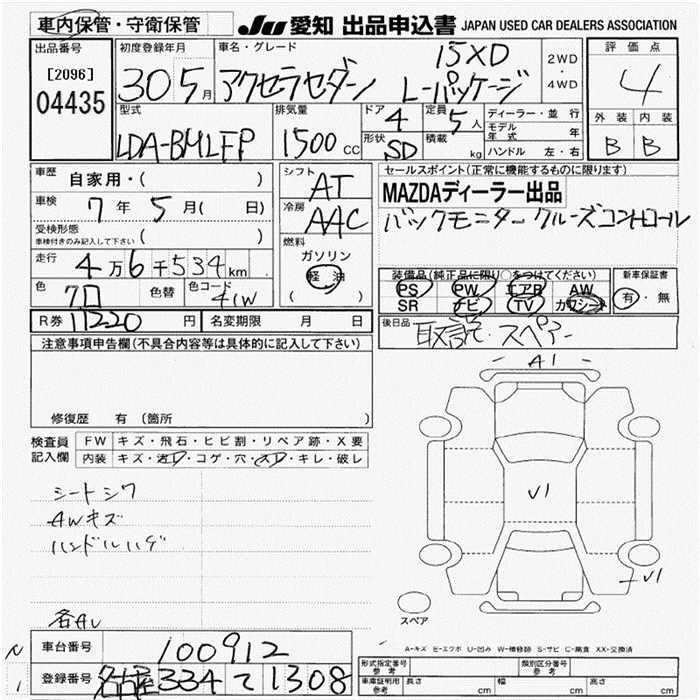 車内保管・守衛保管 JU 愛知 出品申込書 JAPAN USED CAR DEALERS ASSOCIATION
出品番号 [2096] 04435
初度登録年月 30 5月
車名・グレード アクセラセダン 15XD L-パッケージ
2WD・4WD
評価点 4
外装 内装
B B
型式 LDA-BM2FP
排気量 1500 CC
ドア 4
形状 SD
定員 5人
積載 kg
ディーラー・並行
モデル年式 年
ハンドル 左・右
車歴 自家用・( )
車検 7年 5月( 日)
受検形態 ( )
車検付きのみ記入して下さい
走行 4万6千534km
色 クロ 色替 色コード 41W
シフト AT
冷房 AAC
燃料 ガソリン 軽油 ( )
セールスポイント(正常に機能するものに限ります)
MAZDAディーラー出品
バックモニター クルーズコントロール
装備品(純正品に限り○をつけてください)
PS PW エアB AW
SR ナビ TV カワシート
新車保証書 有・無
後日品 取説・スペアー
R券 11220円 名変期限 月 日
注意事項申告欄(不具合内容等は具体的に記入して下さい)
修復歴 有 (箇所
検査員記入欄
FW キズ・飛石・ヒビ割・リペア跡・X要
内装 キズ・汚レ・コゲ・穴・スレ・キレ・破レ
シートシワ
AWキズ
ハンドルハゲ
各AU
A1
V1
V1
スペア
A-キズ E-エクボ U-凹み W-補修跡 S-サビ C-腐食 XX-交換済
車台番号 100912
登録番号 名古屋 334 て 1308
形式指定番号 参考 類別区分番号 参考
車庫証明用 参考 長さ cm 幅 cm 高さ cm